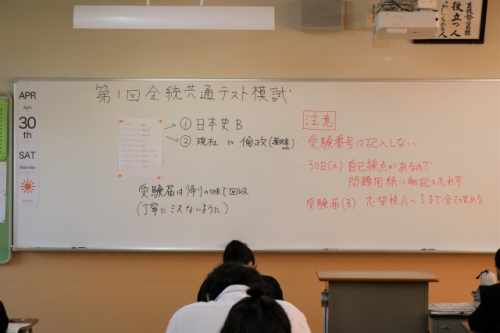 第1回全統共通テスト模試
① 日本史B
② 現社 or 倫政
受験届は帰りのSHRで回収
(丁寧にミスないように)
注意
・受験番号は記入しない
・30日(土)自己採点があるので
問題用紙に転記を忘れず
・受験届(B) 志望校A〜Iまで全て埋める
APR
April
30
th
SAT
Saturday
役立つ人